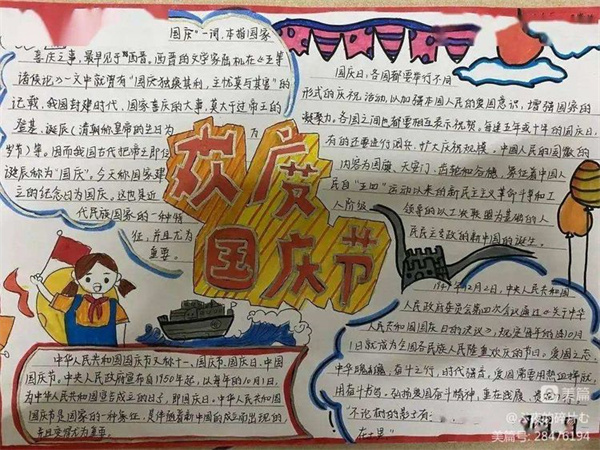 国庆”一词,本指国家
喜庆之事,最早见于西晋。西晋的文学家陆机在《五等
诸侯论》一文中就曾有“国庆独飨其利,主忧莫与其害”的
记载,我国封建时代,国家喜庆的大事,莫大过于帝王的
登基、诞辰(清朝称皇帝的生日为
岁节)等。因而我国古代把帝王即位、
诞辰称为“国庆”。今天称国家建
立的纪念日为国庆,这也是近
代民族国家的一种特
征,并且尤为
重要。
欢度
国庆节
国庆日,各国都要举行不同
形式的庆祝活动,以加强本国人民的爱国意识,增强国家的
凝聚力。各国之间也都要相互表示祝贺。每逢五年或十年的国庆日,
有的还要进行阅兵,扩大庆祝规模。中国人民的国徽的
内容为国旗、天安门、齿轮和谷穗,象征着中国人
民自“五四”运动以来的新民主主义革命斗争和工
人阶级
领导的以工农联盟为基础的人
民民主专政的新中国的诞生。
1949年12月2日,中央人民共和国
人民政府委员会第四次会议通过《关于中华
人民共和国国庆日的决议》,规定每年的10月1
日就成为全国各族人民隆重欢庆的节日。爱国之志,
中华崛起,奋斗之行,时代强音,爱国需要用热血挥洒,
用奋斗书写。弘扬爱国奋斗精神,重在践履,
“不论树的影子有
中华人民共和国国庆节又称十一、国庆节、国庆日、中国
国庆节。中央人民政府宣布自1950年起,以每年的10月1日,
为中华人民共和国宣告成立的日子,即国庆日。中华人民共和国
国庆节是国家的一种象征,是伴随着新中国的成立而出现的
并且变得尤为重要。
美篇
美篇号: 28476194